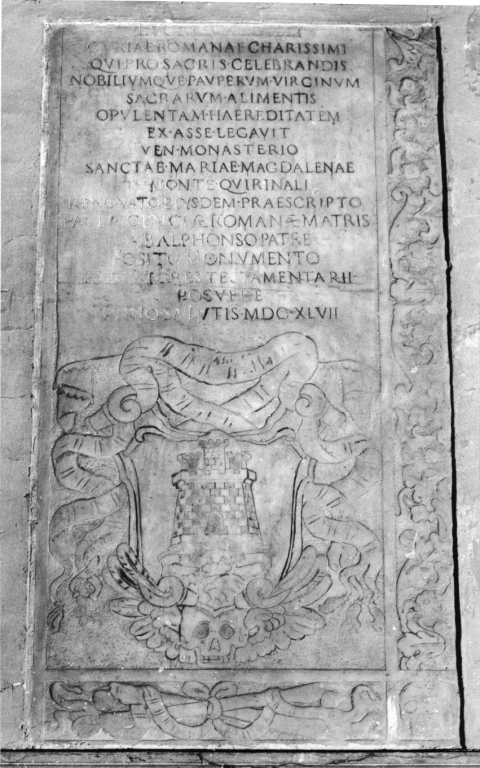 CVRIAE ROMANAE CHARISSIMI
QVI PRO SACRIS CELEBRANDIS
NOBILIVMQVE PAVPERVM VIRGINVM
SACRARVM ALIMENTIS
OPVLENTAM HAEREDITATEM
EX ASSE LEGAVIT
VEN MONASTERIO
SANCTAE MARIAE MAGDALENAE
MONTE QVIRINALI
EIVSDEM PRAESCRIPTO
ROMANÆ MATRIS
ALPHONSO PATRE
MONVMENTO
TESTAMENTARII
POSVERE
ANNO SALVTIS MDC XLVII